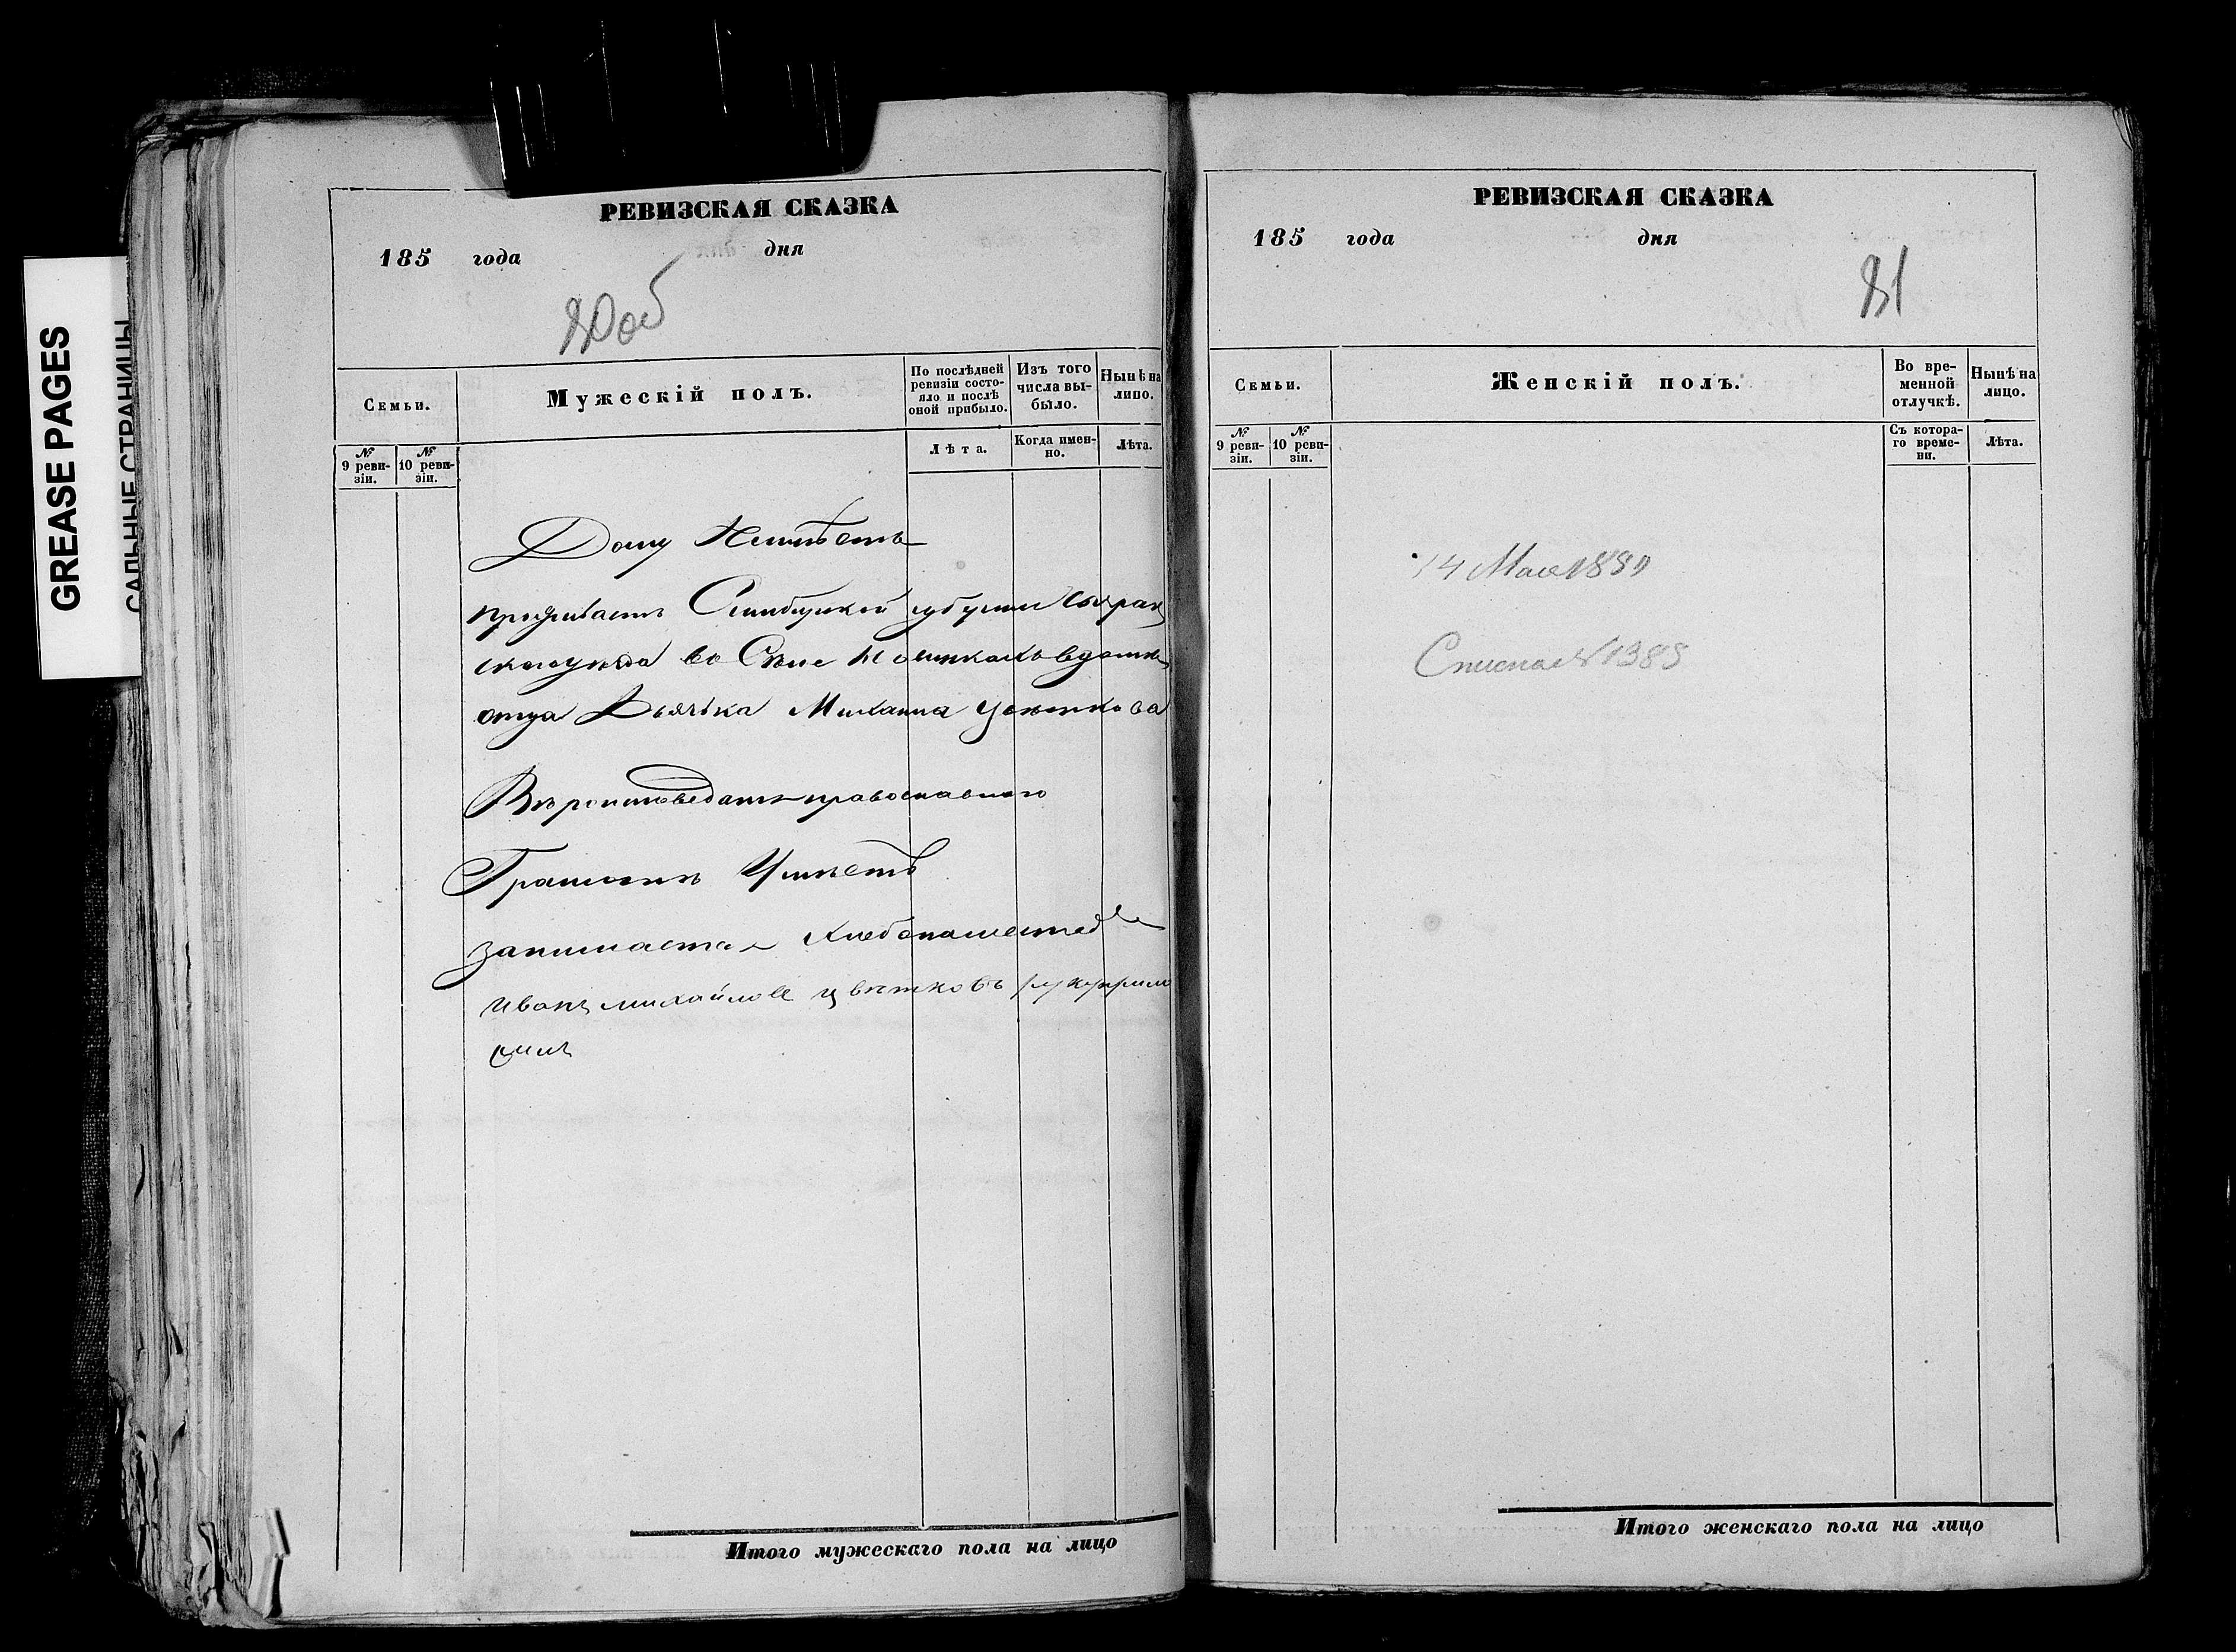 GREASE PAGES
САЛЬНЫЕ СТРАНИЦЫ
РЕВИЗСКАЯ СКАЗКА
185 года дня
80об
Семьи.
Мужескій полъ.
По послѣдней ревизіи состояло и послѣ оной прибыло.
Изъ того числа выбыло.
Нынѣ на лицо.
№ 9 ревизіи.
№ 10 ревизіи.
Лѣта.
Когда именно.
Лѣта.
Дому Неимѣетъ
проживаетъ Симбирской губерніи Сызран
скаго уѣзда во Селе въ доме
отца Дьячка Михаила Цветкова
Вѣроисповеданія православнаго
Грамоте Умѣетъ
занимается хлебопашество
Иванъ михайловъ цветковъ руку прило
жилъ
Итого мужескаго пола на лицо
РЕВИЗСКАЯ СКАЗКА
185 года дня
81
Семьи.
Женскій полъ.
Во временной отлучкѣ.
Нынѣ на лицо.
№ 9 ревизіи.
№ 10 ревизіи.
Съ котораго времени.
Лѣта.
14 Мая
Списка № 1385
Итого женскаго пола на лицо